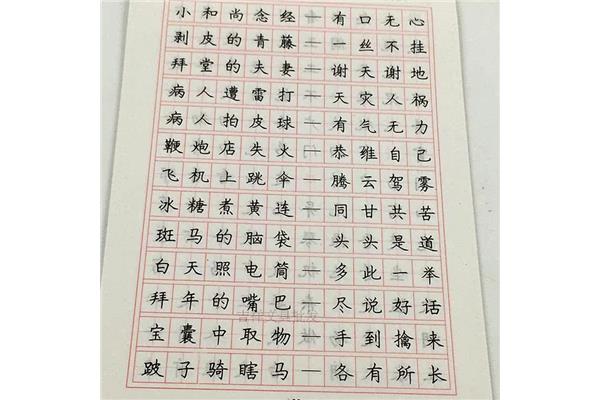 小和尚念经—有口无心
剥皮的青藤—一丝不挂
拜堂的夫妻—谢天谢地
病人遭雷打—天灾人祸
病人拍皮球—有气无力
鞭炮店失火—恭维自己
飞机上跳伞—腾云驾雾
冰糖煮黄连—同甘共苦
斑马的脑袋—头头是道
白天照电筒—多此一举
拜年的嘴巴—尽说好话
宝囊中取物—手到擒来
跛子骑瞎马—各有所长